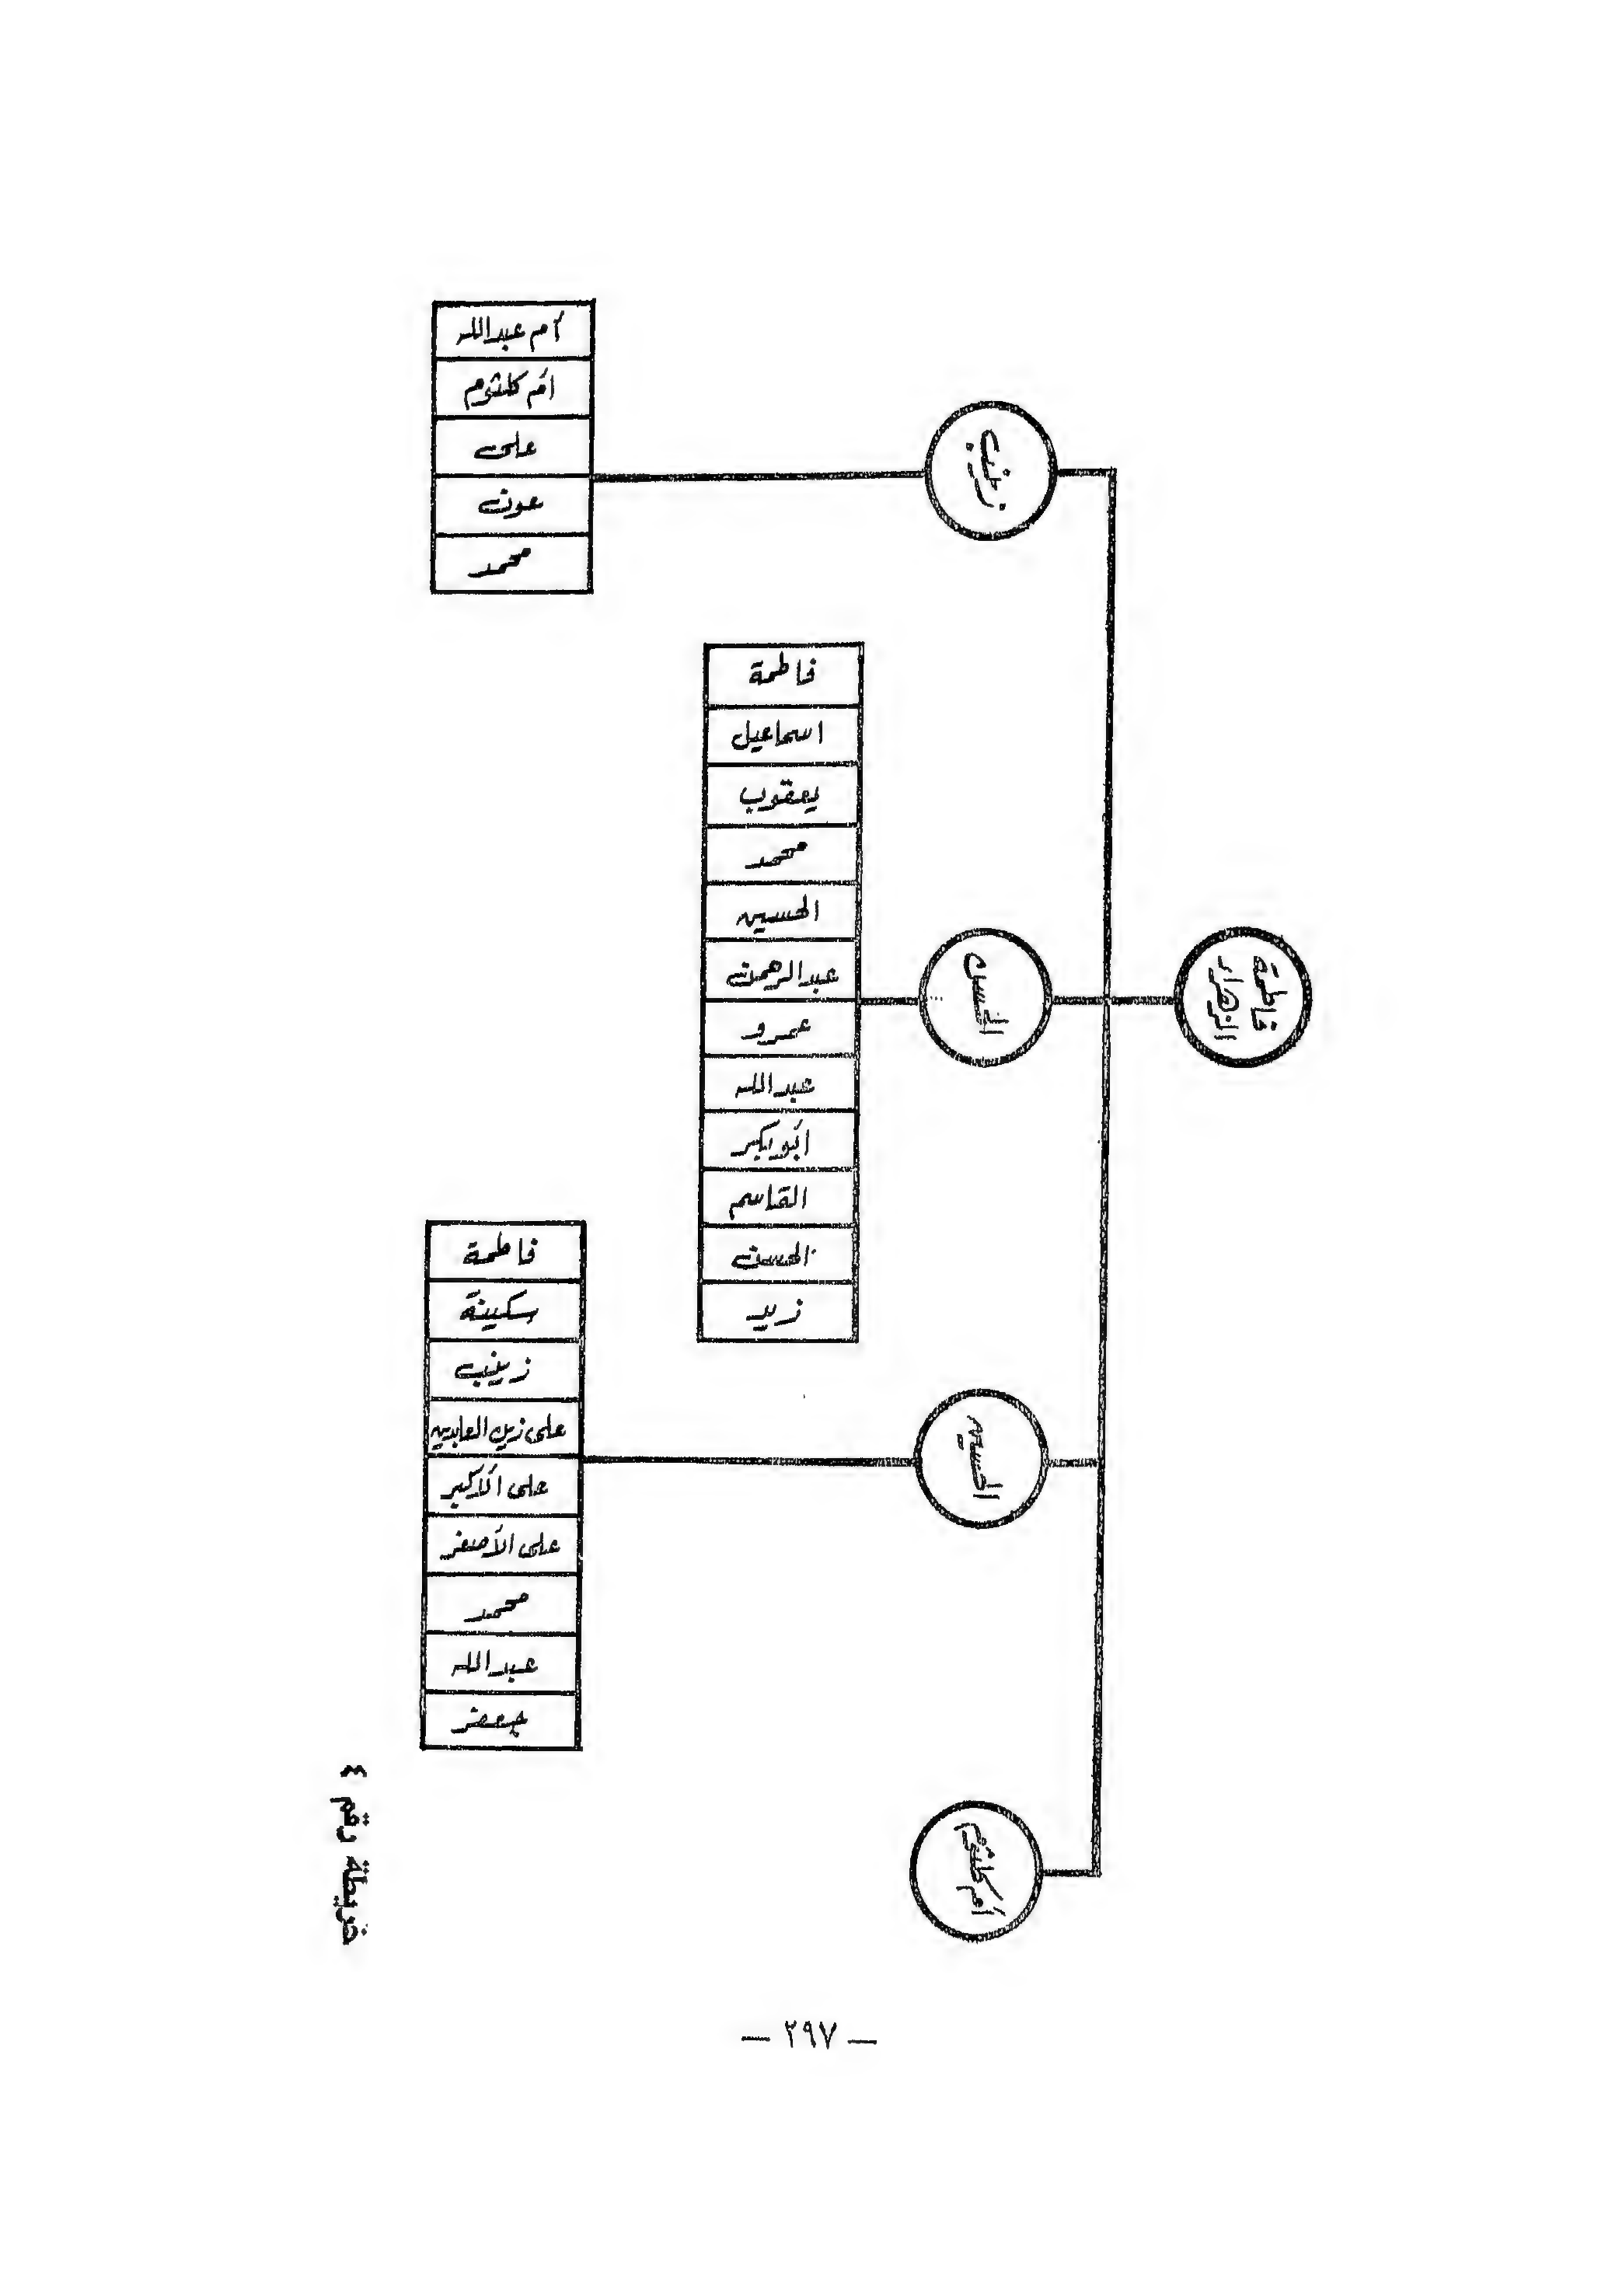 فاطمة
الزهراء
زينب
أم عبدالله
أم كلثوم
على
عون
محمد
الحسن
فاطمة
اسماعيل
يعقوب
محمد
الحسين
عبدالرحمن
عمرو
عبدالله
أبوبكر
القاسم
الحسن
زيد
الحسين
فاطمة
سكينة
زينب
على زين العابدين
على الأكبر
على الأصغر
محمد
عبدالله
جعفر
أم كلثوم
خريطة رقم ٤
— ٢٩٧ —